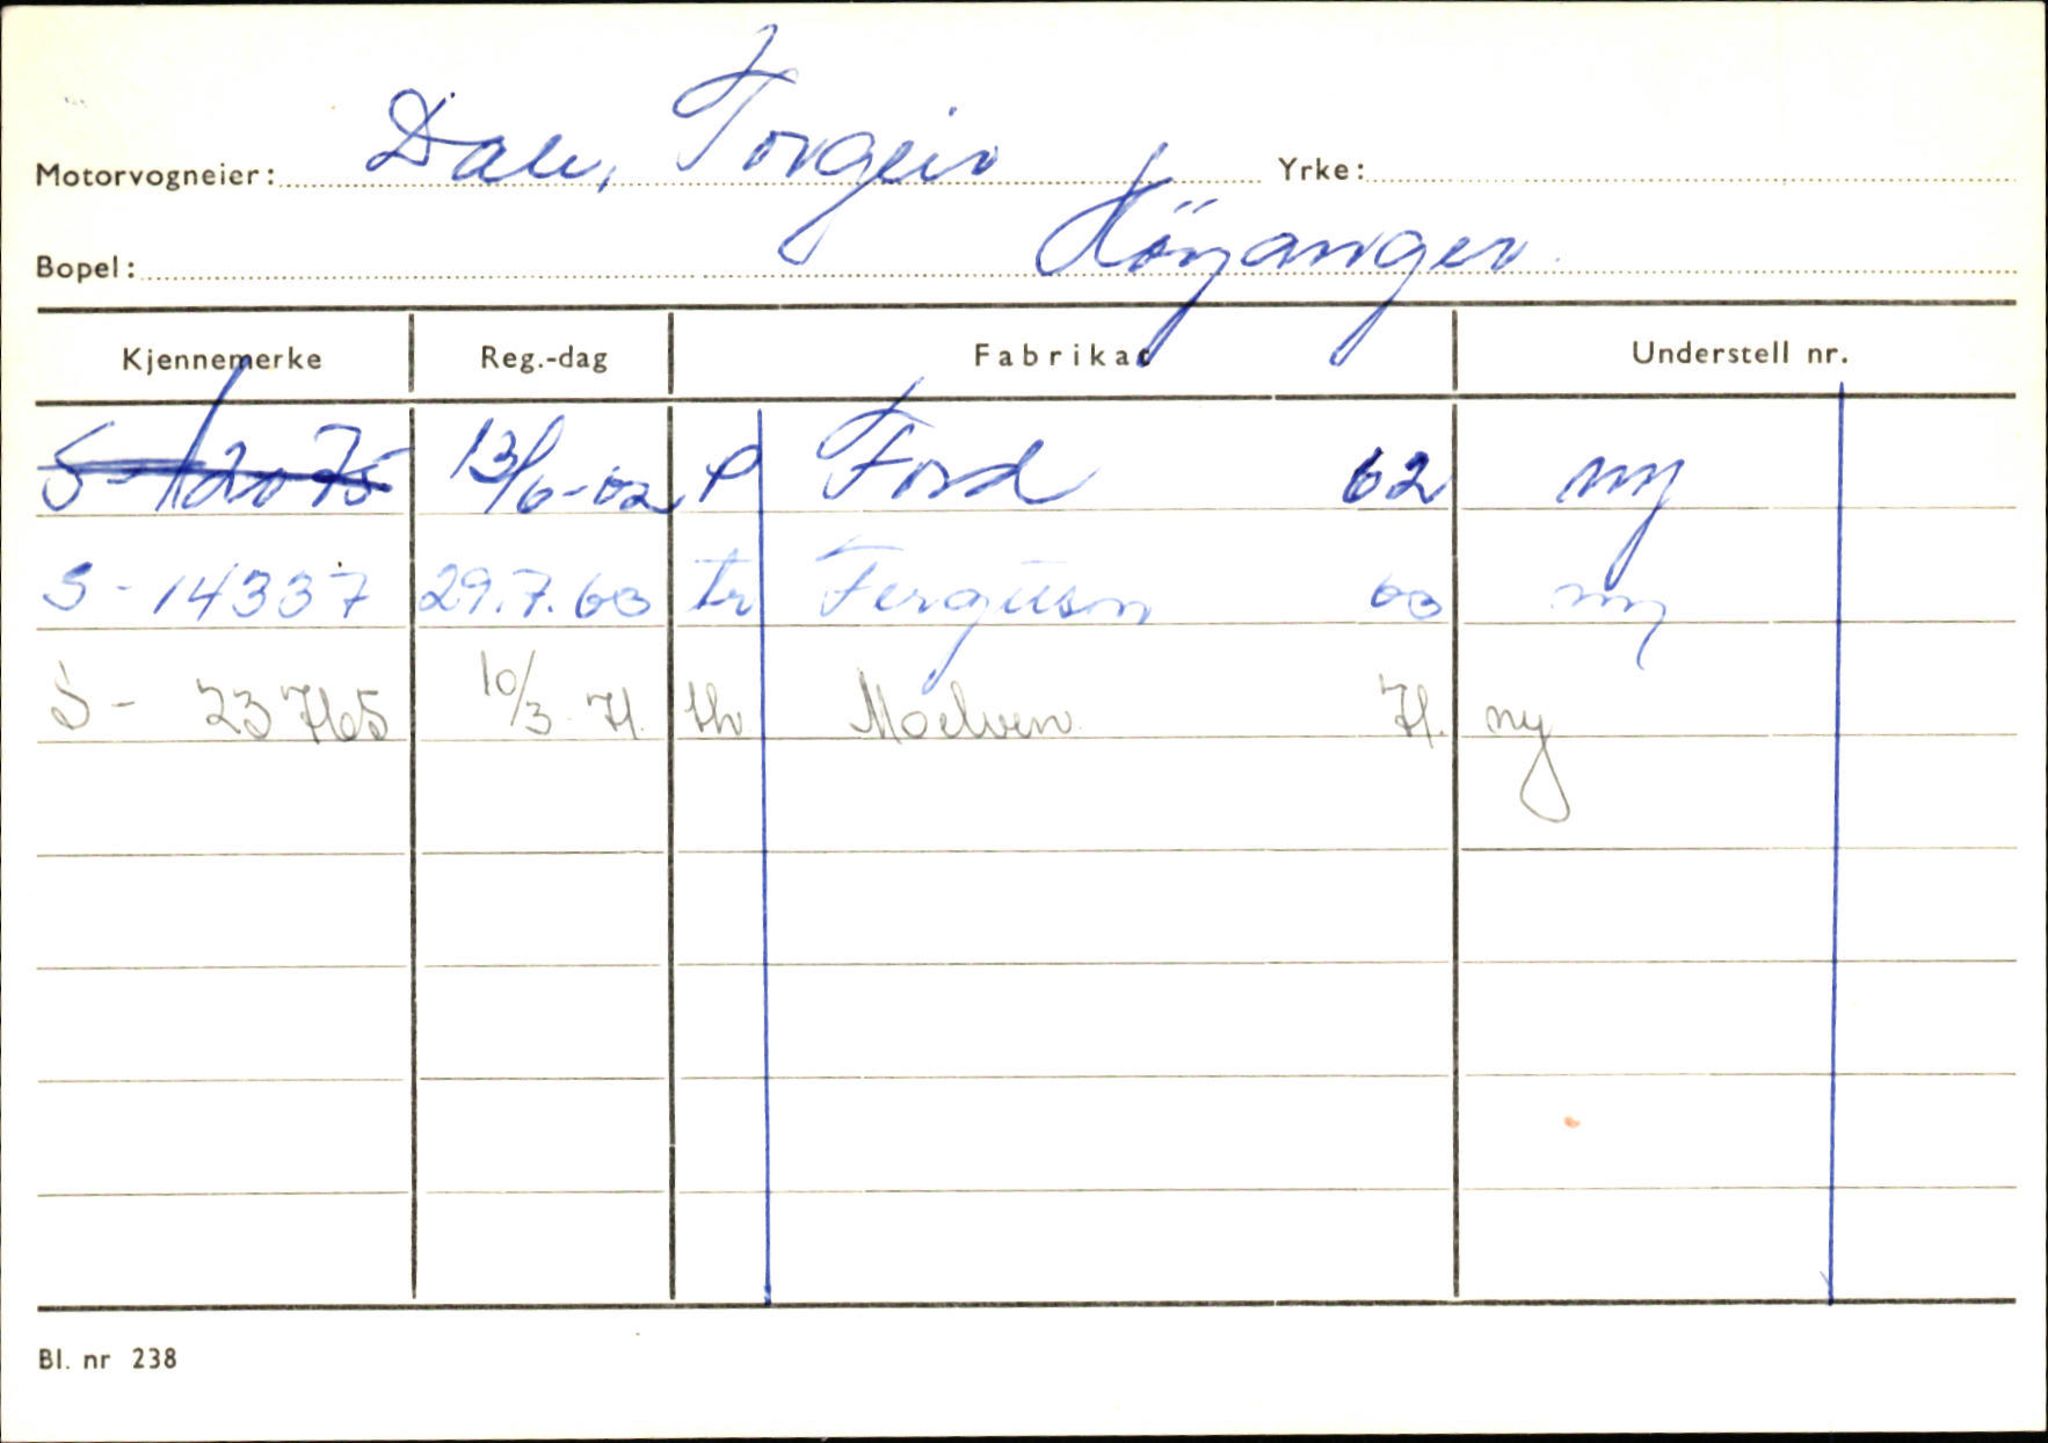 Motorvogneier: Dale, Torgeir Yrke:
Bopel: Höyanger
Kjennemerke Reg.-dag Fabrikat Understell nr.
S-12075 13/6-62 P Ford 62 ny
S-14337 29.7.63 tr Ferguson 63 ny
S-23765 10/3-71. th Moelven 71. ny
Bl. nr 238